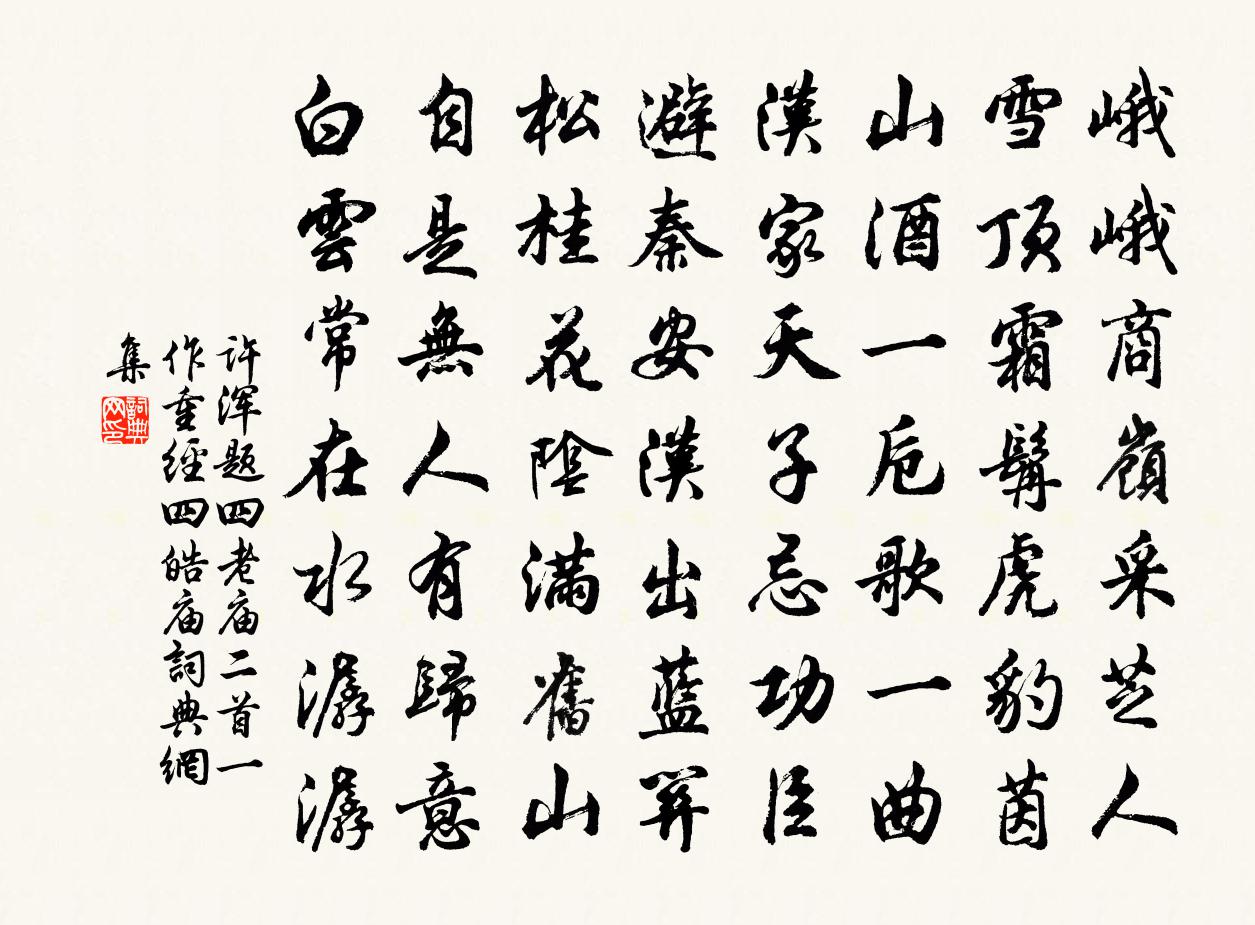 峨峨商嶺采芝人
雪顶霜髯虎豹茵
山酒一卮歌一曲
漢家天子忌功臣
避秦安漢出藍関
松桂花陰滿舊山
自是無人有歸意
白雲常在水潺潺
许浑题四老庙二首一
作重經四皓庙詞典網
集
詞典网印